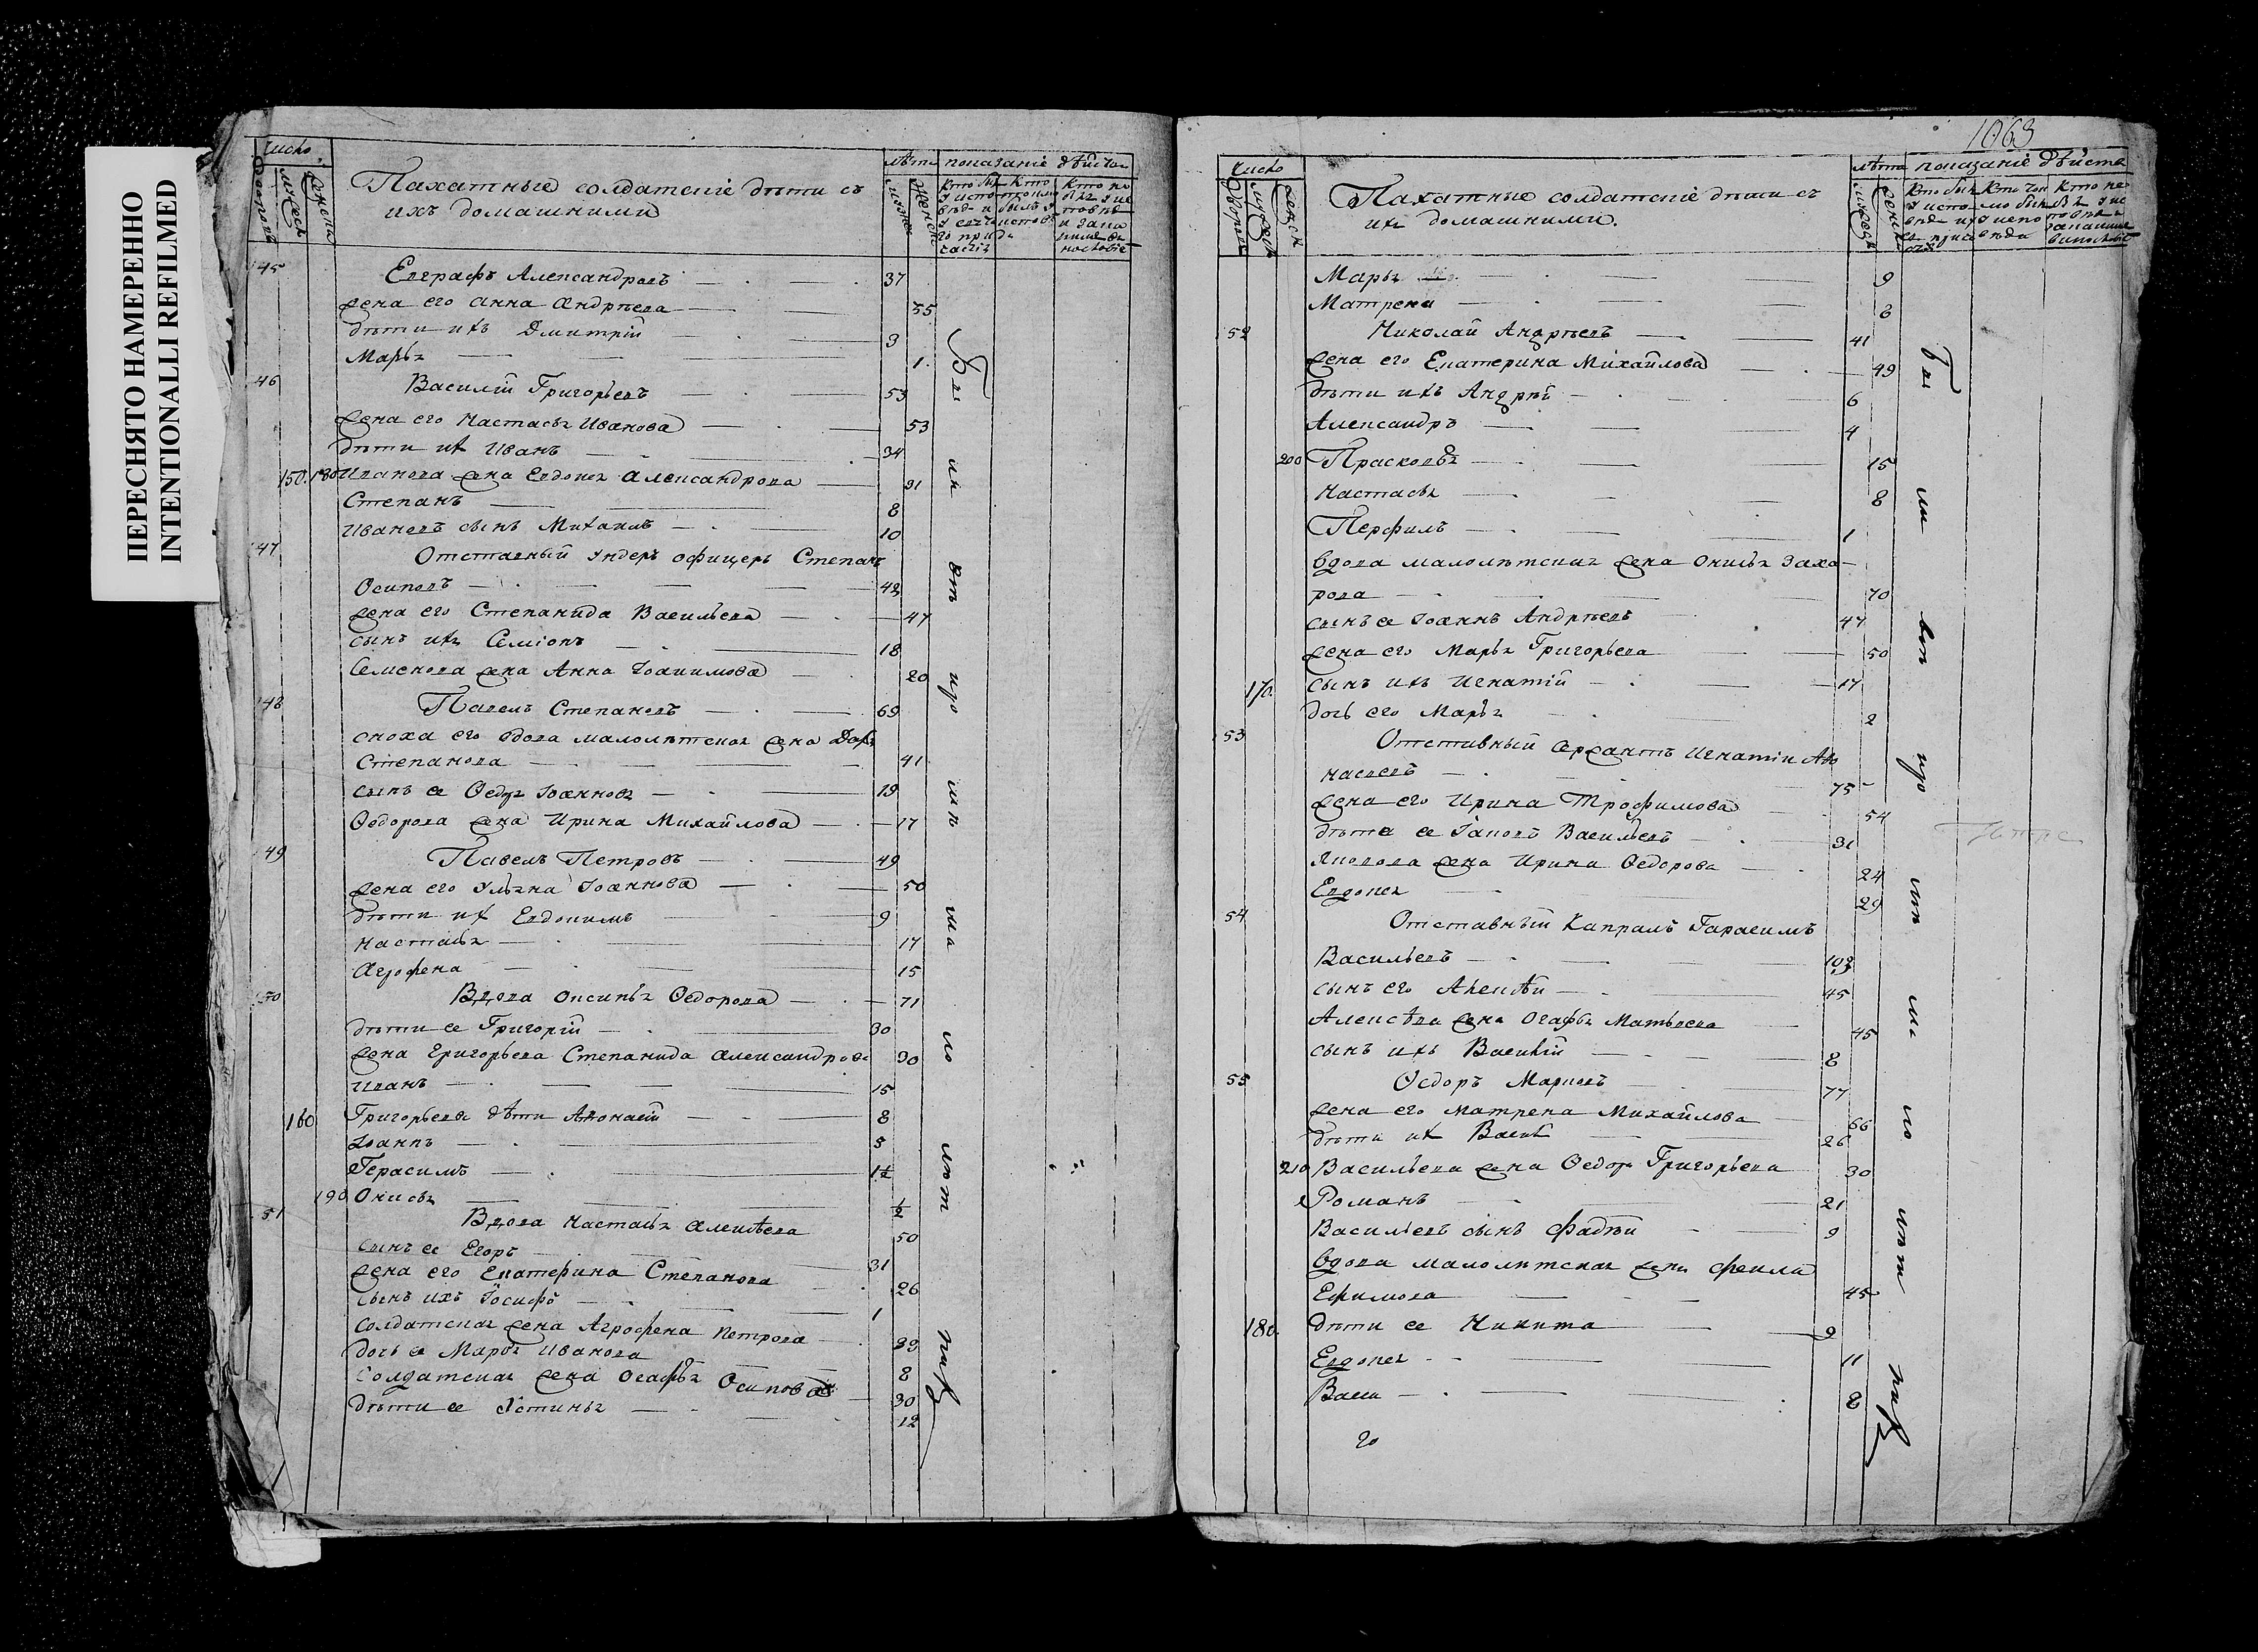 ПЕРЕСНЯТО НАМЕРЕННО
INTENTIONALLI REFILMED
число
дворовъ
мужеск
женска
Пахатные солдатскіе дѣти съ
ихъ домашними
лѣта
мужеск
женск
показаніе дѣйств
45 Евграфъ Александровъ 37
жена его Анна Андрѣева 35
дѣти ихъ Дмитрій 9
Марья 1
46 Василій Григорьевъ 53
жена его Настасья Иванова 53
дѣти их Иванъ 34
150. 180 Иванова жена Евдокея Александрова 31
Степанъ 8
Ивановъ сынъ Михаилъ 10
47 Отставный ундеръ офицеръ Степанъ
Осиповъ 42
жена его Степанида Васильева 47
сынъ ихъ Семіонъ 18
Семенова жена Анна Іоакимова 20
48 Павелъ Степановъ 69
сноха его вдова малолѣтская жена Дарья
Степанова 41
сынъ ея Ѳедоръ Іоанновъ 19
Ѳедорова жена Ирина Михайлова 17
49 Павелъ Петровъ 49
жена его Ульяна Іоаннова 50
дѣти их Евдокимъ 9
Настасья 17
Агрофена 15
50 Вдова Оксинья Ѳедорова 71
дѣти ее Григорій 30
жена Григорьева Степанида Александрова 30
Иванъ 15
160 Григорьева дѣти Афонасій 8
Іоаннъ 5
Герасимъ 1½
190 Онисья ½
51 Вдова Настасья Алексѣева 50
сынъ ее Егоръ 31
жена его Екатерина Степанова 26
сынъ ихъ Іосифъ 1
Солдатская жена Агрофена Петрова 39
дочь ея Марья Иванова 8
Солдатская жена Огафья Осипова 30
дѣти ее Устинья 12
Бы
ли
вт
про
шл
ма
ло
лѣт
1063
число
дворовъ
мужеск
женск
Пахатные солдатскіе дѣти съ
ихъ домашними.
лѣта
мужеск
женск
показаніе дѣйств
Марья 9
Матрена 6
52 Николай Андрѣевъ 41
жена его Екатерина Михайлова 49
дѣти ихъ Андрѣй 6
Александръ 4
200 Прасковья 15
Настасья 8
Перфилъ 1
Вдова малолѣтская жена Онисья Заха
рова 70
сынъ ее Іоаннъ Андрѣевъ 47
жена его Марья Григорьева 50
170. сынъ ихъ Игнатій 17
дочь его Марья 2
53 Отставный сержантъ Игнатій Афо
насьевъ 75
жена его Ирина Трофимова 54
дѣти ее Іаковъ Васильевъ 31
Яковова жена Ирина Ѳедорова 24
Евдокея 29
54 Отставный Капралъ Гарасимъ
Васильевъ 103
сынъ его Алексѣй 45
Алексѣва жена Огафья Матвѣева 45
сынъ ихъ Василій 8
55 Ѳедоръ Марковъ 77
жена его Матрена Михайлова 66
дѣти их Васил 26
210 Васильева жена Ѳедора Григорьева 30
Романъ 21
Васильевъ сынъ Фадѣй 9
Вдова малолѣтская жена Фекла
Ефимова 45
180. дѣти ее Никита 9
Евдокея 11
Васи 8